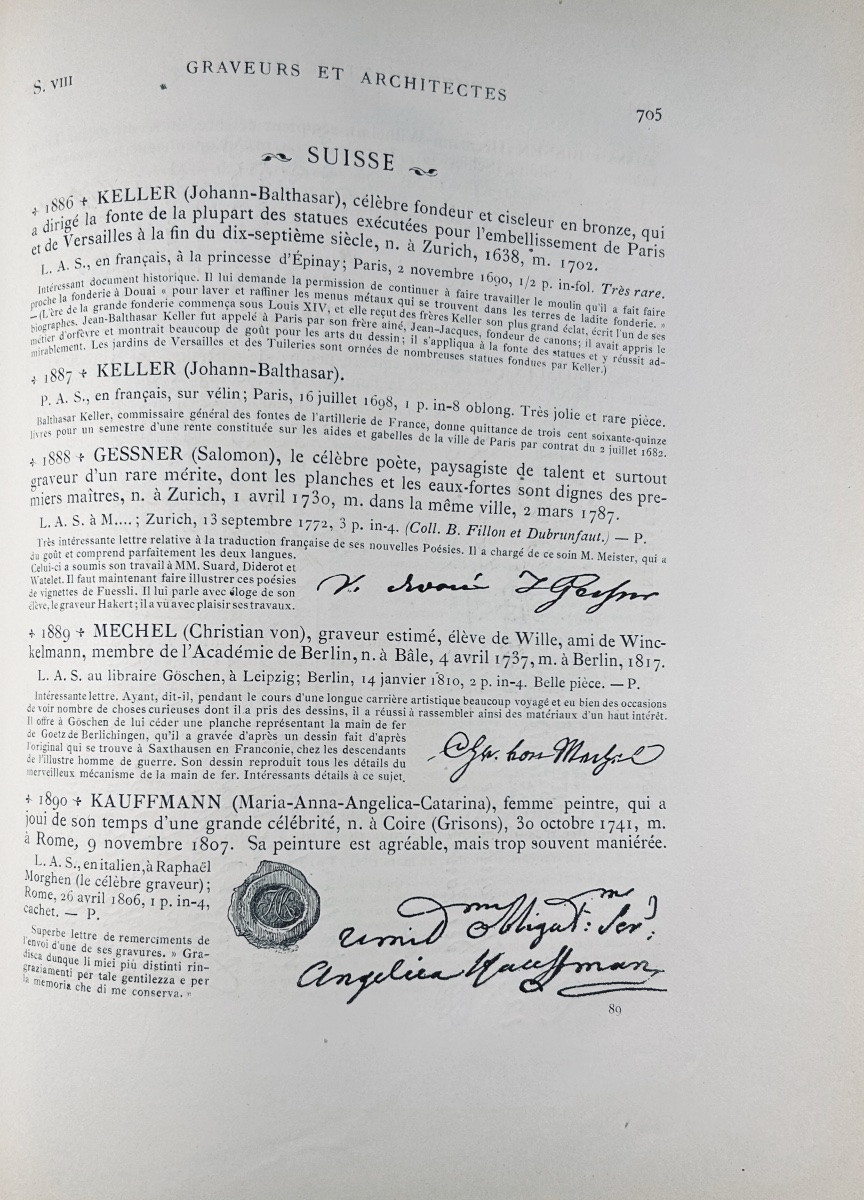 S. VIII
GRAVEURS ET ARCHITECTES
705
SUISSE
+ 1886 + KELLER (Johann-Balthasar), célèbre fondeur et ciseleur en bronze, qui
a dirigé la fonte de la plupart des statues exécutées pour l'embellissement de Paris
et de Versailles à la fin du dix-septième siècle, n. à Zurich, 1638, m. 1702.
L. A. S., en français, à la princesse d'Épinay; Paris, 2 novembre 1690, 1/2 p. in-fol. Très rare.
Intéressant document historique. Il lui demande la permission de continuer à faire travailler le moulin qu'il a fait faire
proche la fonderie à Douai « pour laver et raffiner les menus métaux qui se trouvent dans les terres de ladite fonderie. »
— (L'ère de la grande fonderie commença sous Louis XIV, et elle reçut des frères Keller son plus grand éclat, écrit l'un de ses
biographes. Jean-Balthasar Keller fut appelé à Paris par son frère aîné, Jean-Jacques, fondeur de canons; il avait appris le
métier d'orfèvre et montrait beaucoup de goût pour les arts du dessin; il s'appliqua à la fonte des statues et y réussit ad-
mirablement. Les jardins de Versailles et des Tuileries sont ornées de nombreuses statues fondues par Keller.)
+ 1887 + KELLER (Johann-Balthasar).
P. A. S., en français, sur vélin; Paris, 16 juillet 1698, 1 p. in-8 oblong. Très jolie et rare pièce.
Balthasar Keller, commissaire général des fontes de l'artillerie de France, donne quittance de trois cent soixante-quinze
livres pour un semestre d'une rente constituée sur les aides et gabelles de la ville de Paris par contrat du 2 juillet 1682.
+ 1888 + GESSNER (Salomon), le célèbre poète, paysagiste de talent et surtout
graveur d'un rare mérite, dont les planches et les eaux-fortes sont dignes des pre-
miers maîtres, n. à Zurich, 1 avril 1730, m. dans la même ville, 2 mars 1787.
L. A. S. à M....; Zurich, 13 septembre 1772, 3 p. in-4. (Coll. B. Fillon et Dubrunfaut.) — P.
Très intéressante lettre relative à la traduction française de ses nouvelles Poésies. Il a chargé de ce soin M. Meister, qui a
du goût et comprend parfaitement les deux langues.
Celui-ci a soumis son travail à MM. Suard, Diderot et
Watelet. Il faut maintenant faire illustrer ces poésies
de vignettes de Fuessli. Il lui parle avec éloge de son
élève, le graveur Hakert; il a vu avec plaisir ses travaux.
S Gessner
+ 1889 + MECHEL (Christian von), graveur estimé, élève de Wille, ami de Winc-
kelmann, membre de l'Académie de Berlin, n. à Bâle, 4 avril 1737, m. à Berlin, 1817.
L. A. S. au libraire Göschen, à Leipzig; Berlin, 14 janvier 1810, 2 p. in-4. Belle pièce. — P.
Intéressante lettre. Ayant, dit-il, pendant le cours d'une longue carrière artistique beaucoup voyagé et eu bien des occasions
de voir nombre de choses curieuses dont il a pris des dessins, il a réussi à rassembler ainsi des matériaux d'un haut intérêt.
Il offre à Göschen de lui céder une planche représentant la main de fer
de Goetz de Berlichingen, qu'il a gravée d'après un dessin fait d'après
l'original qui se trouve à Saxthausen en Franconie, chez les descendants
de l'illustre homme de guerre. Son dessin reproduit tous les détails du
merveilleux mécanisme de la main de fer. Intéressants détails à ce sujet.
Chr. von Mechel
+ 1890 + KAUFFMANN (Maria-Anna-Angelica-Catarina), femme peintre, qui a
joui de son temps d'une grande célébrité, n. à Coire (Grisons), 30 octobre 1741, m.
à Rome, 9 novembre 1807. Sa peinture est agréable, mais trop souvent maniérée.
L. A. S., en italien, à Raphaël
Morghen (le célèbre graveur);
Rome, 26 avril 1806, 1 p. in-4,
cachet. — P.
Superbe lettre de remerciments de
l'envoi d'une de ses gravures. » Gra-
disca dunque li miei più distinti rin-
graziamenti per tale gentilezza e per
la memoria che di me conserva. »
Obligat: Ser:
Angelica Kauffman
89